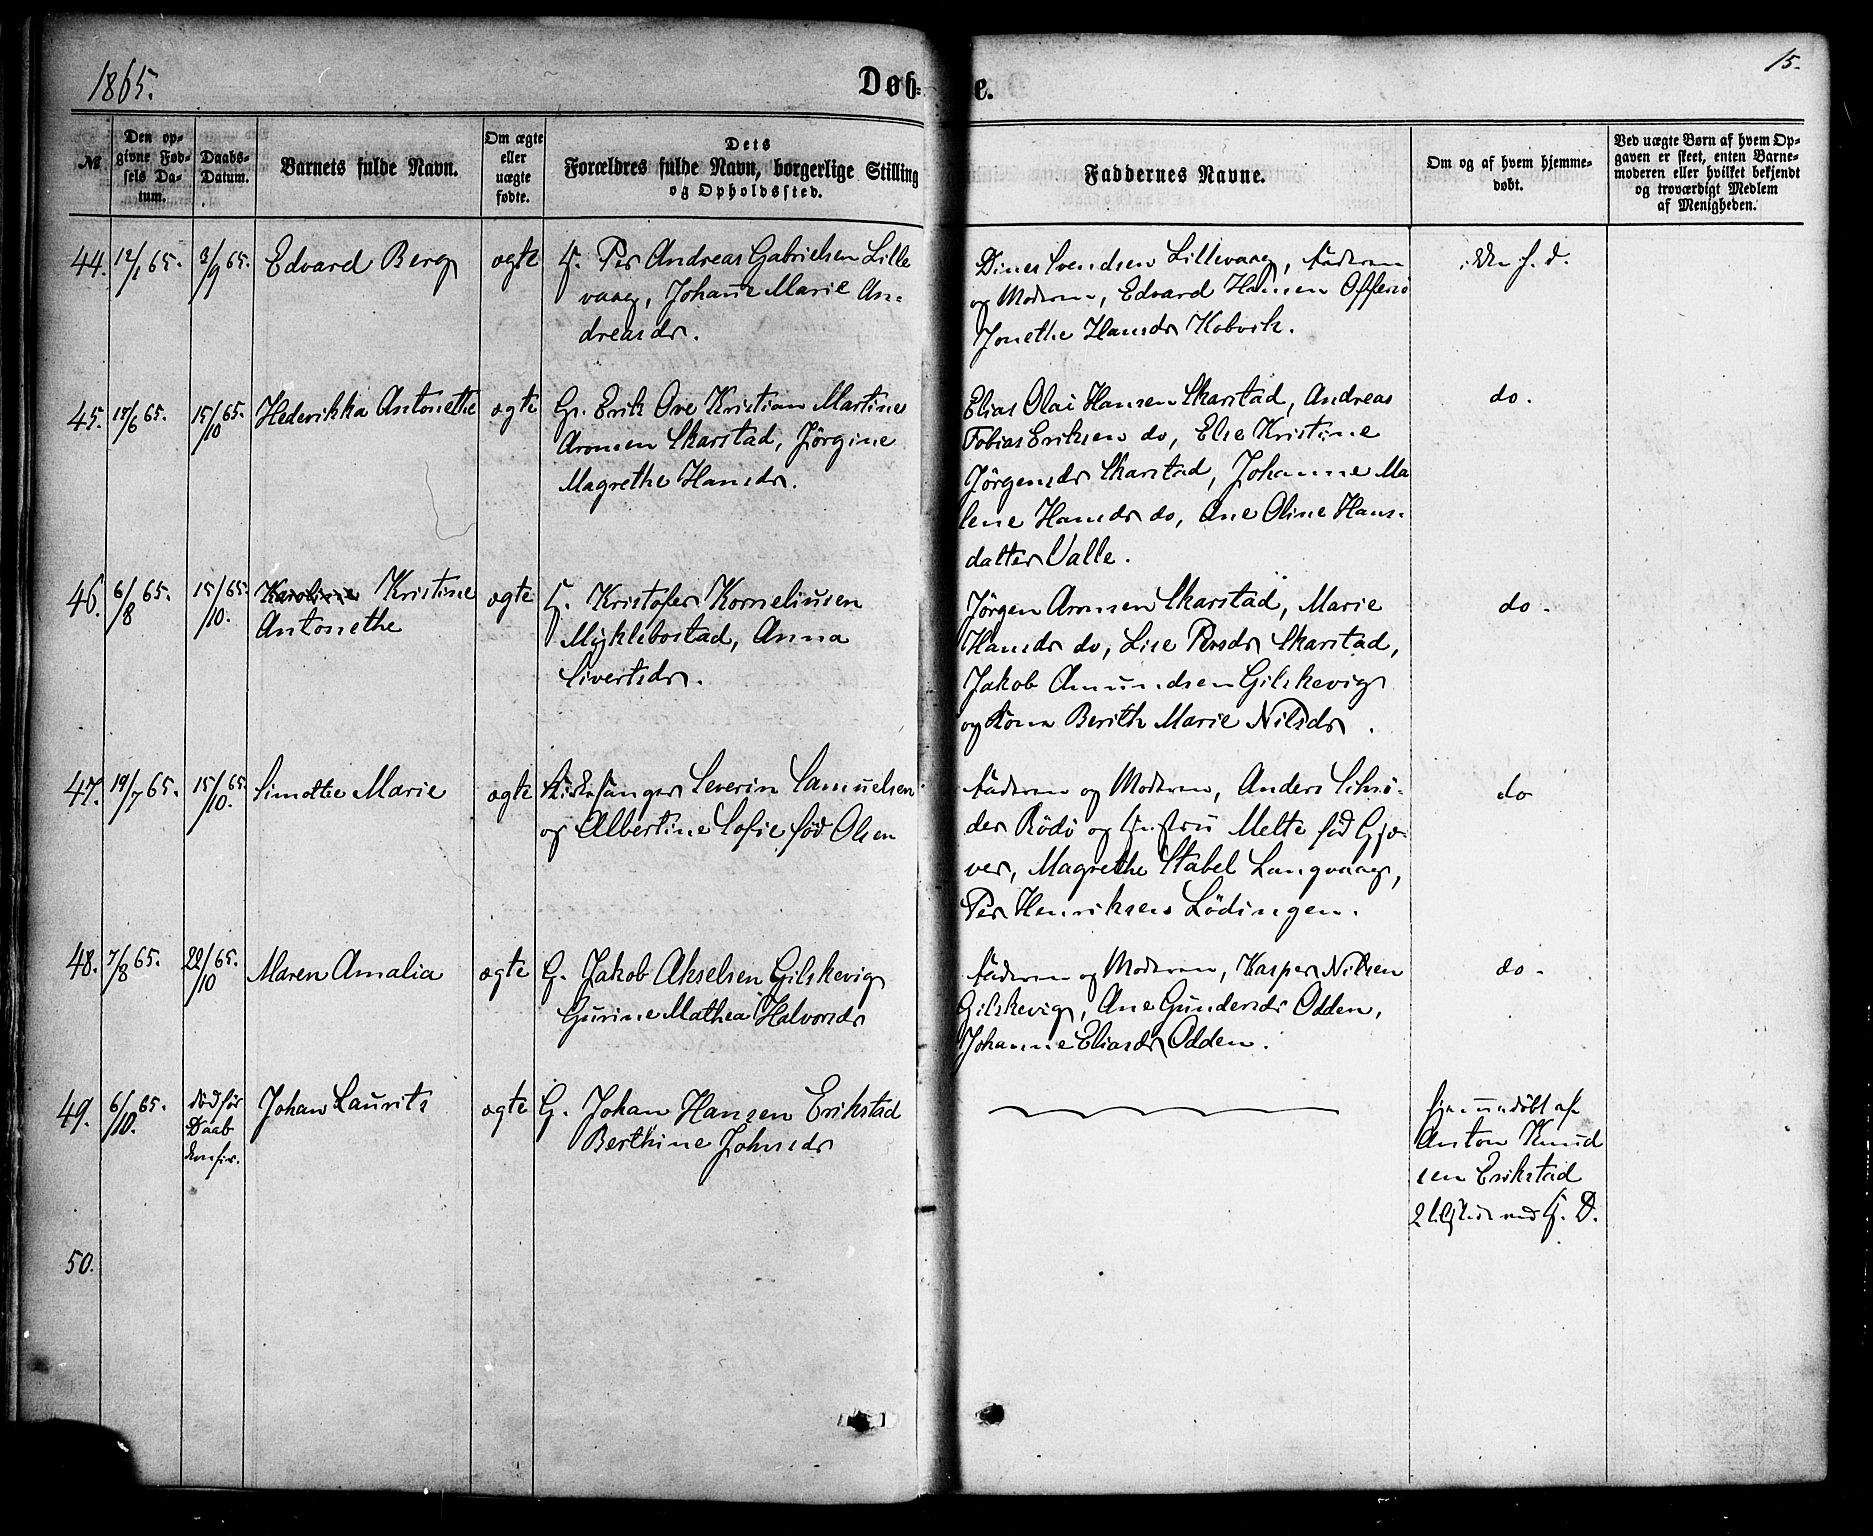 1865.
Døb=
e.
15.
№
Den op-
givne Fød-
sels Da-
tum.
Daabs-
Datum.
Barnets fulde Navn.
Om ægte
eller
uægte
fødte.
Dets
Forældres fulde Navn, borgerlige Stilling
og Opholdssted.
Faddernes Navne.
Om og af hvem hjemme-
døbt.
Ved uægte Børn af hvem Op-
gaven er skeet, enten Barne-
moderen eller hvilket bekjendt
og troværdigt Medlem
af Menigheden.
44. 12/1 65. 3/9 65. Edvard Berg ægte G. Per Andreas Gabrielsen Lille
vaag, Johanne Marie An-
dreasdr.
Dines Svendsen Lillevaag, Faderen
og Moderen, Edvard Hansen Offersø
Jonethe Hansdr Kobvik.
45. 17/6 65. 15/10 65. Hederikka Antonethe ægte G. Erik Ove Kristian Martine
Aronsen Skarstad, Jørgine
Magrethe Hansdr.
Elias Olai Hansen Skarstad, Andreas
Tobias Eriksen do, Else Kristine
Jørgensdr Skarstad, Johanne Ma
lene Hansdr do, Ane Oline Hans-
datter Valle.
do.
46. 6/8 65. 15/10 65. Karoline Kristine
Antonethe
ægte G. Kristofer Korneliusen
Myklebostad, Anna
Sivertsdr.
Jørgen Aronsen Skarstad, Marie
Hansdr do, Lise Persdr Skarstad,
Jakob Amundsen Gilskevig
og Kona Berith Marie Nilsdr.
do.
47. 19/7 65. 15/10 65. Simothe Marie ægte Kirkesanger Severin Samuelsen
og Albertine Sofie fød Olsen
Faderen og Moderen, Anders Schrø-
der Rödö og Hustru Melte fød Gjæ-
ver, Magrethe Stabel Langvaag,
Per Henriksen Lödingen.
do
48. 7/8 65. 22/10 65. Maren Amalia ægte G. Jakob Akselsen Gilskevig
Gurine Mathea Halvorsdr
Faderen og Moderen, Kasper Nilsen
Gilskevig, Ane Gundersdr Odden,
Johanne Eliasdr Odden.
do.
49. 6/10 65. død før
Daab
Johan Laurits ægte G. Johan Hansen Erikstad
Berthine Johnsdr
hjemmedöbt af
Anton Knud
sen Erikstad
50.